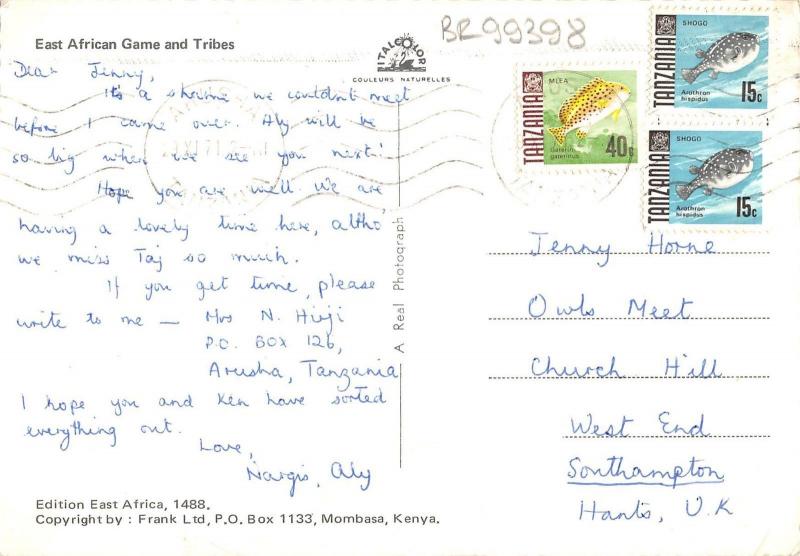 East African Game and Tribes
BR99398
ITALCOLOR
COULEURS NATURELLES
Dear Jenny,
It's a shame we couldn't meet
before I came over. Aly will be
so big when we see you next!
Hope you are well. We are
having a lovely time here, altho'
we miss Taj so much.
If you get time, please
write to me — Mrs N. Hirji
P.O. BOX 126,
Arusha, Tanzania
I hope you and Ken have sorted
everything out.
Love,
Nargis, Aly
Edition East Africa, 1488.
Copyright by : Frank Ltd, P.O. Box 1133, Mombasa, Kenya.
A Real Photograph
TANZANIA
MLEA
Gaterin
gaterinus
40c
TANZANIA
SHOGO
Arothron
hispidus
15c
TANZANIA
SHOGO
Arothron
hispidus
15c
Jenny Horne
Owls Meet
Church Hill
West End
Southampton
Hants, U.K